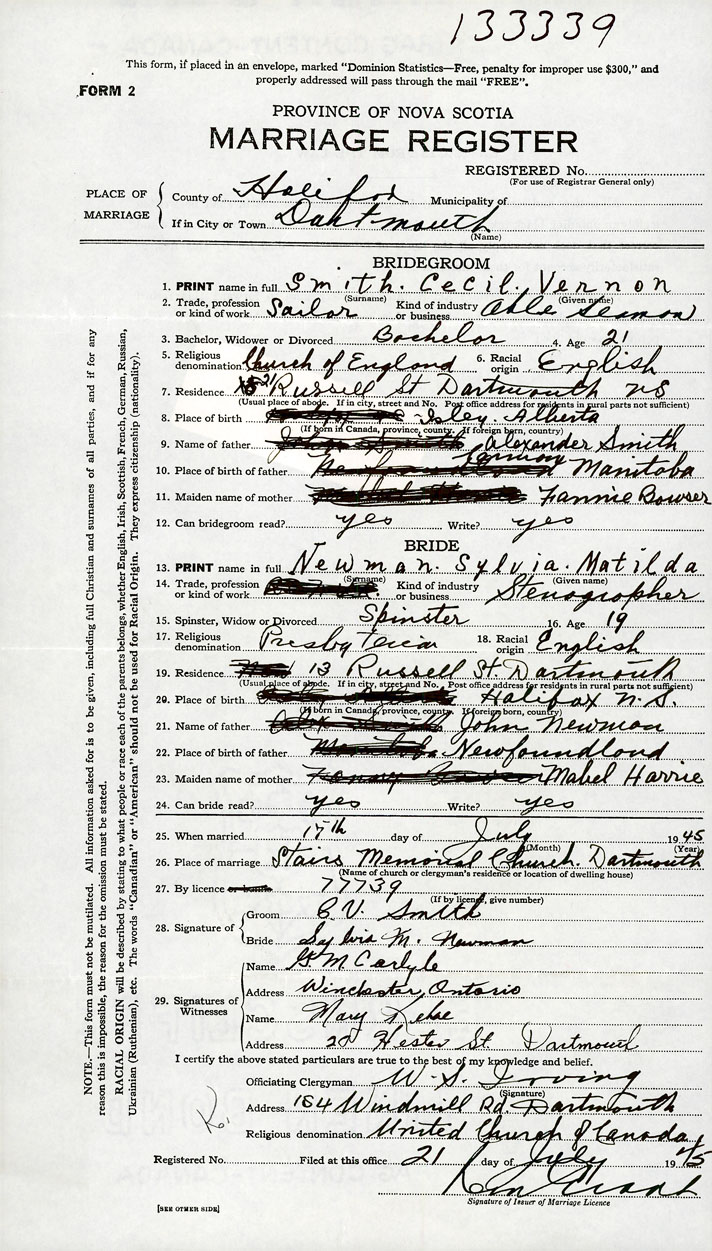 133339
This form, if placed in an envelope, marked "Dominion Statistics—Free, penalty for improper use $300," and
properly addressed will pass through the mail "FREE".
FORM 2
PROVINCE OF NOVA SCOTIA
MARRIAGE REGISTER
REGISTERED No.
(For use of Registrar General only)
PLACE OF MARRIAGE
County of Halifax Municipality of
If in City or Town Dartmouth
(Name)
BRIDEGROOM
1. PRINT name in full Smith. Cecil. Vernon
(Surname) (Given name)
2. Trade, profession or kind of work Sailor Kind of industry or business Able Seaman
3. Bachelor, Widower or Divorced Bachelor 4. Age 21
5. Religious denomination Church of England 6. Racial origin English
7. Residence 21 Russell St Dartmouth NS
(Usual place of abode. If in city, street and No. Post office address for residents in rural parts not sufficient)
8. Place of birth Isley, Alberta
(If born in Canada, province, county. If foreign born, county)
9. Name of father Alexander Smith
10. Place of birth of father Manitoba
11. Maiden name of mother Fannie Bowser
12. Can bridegroom read? yes Write? yes
BRIDE
13. PRINT name in full Newman. Sylvia. Matilda
(Surname) (Given name)
14. Trade, profession or kind of work Kind of industry or business Stenographer
15. Spinster, Widow or Divorced Spinster 16. Age 19
17. Religious denomination Presbyterian 18. Racial origin English
19. Residence 13 Russell St Dartmouth
(Usual place of abode. If in city, street and No. Post office address for residents in rural parts not sufficient)
20. Place of birth Halifax N.S.
(If born in Canada, province, county. If foreign born, county)
21. Name of father John Newman
22. Place of birth of father Newfoundland
23. Maiden name of mother Mabel Harrie
24. Can bride read? yes Write? yes
25. When married 17th day of July 1945
(Month) (Year)
26. Place of marriage Stairs Memorial Church. Dartmouth
(Name of church or clergyman's residence or location of dwelling house)
27. By licence or banns 77739
(If by license, give number)
28. Signature of
Groom C.V. Smith
Bride Sylvia M. Newman
29. Signatures of Witnesses
Name G.M Carlyle
Address Winchester, Ontario
Name Mary Kehoe
Address 20 Hester St. Dartmouth
I certify the above stated particulars are true to the best of my knowledge and belief.
Officiating Clergyman W. S. Irving
(Signature)
Address 154 Windmill Rd, Dartmouth
Religious denomination United Church of Canada
Registered No. Filed at this office 21 day of July 1945
Signature of Issuer of Marriage Licence
[SEE OTHER SIDE]
NOTE.—This form must not be mutilated. All information asked for is to be given, including full Christian and surnames of all parties, and if for any
reason this is impossible, the reason for the omission must be stated.
RACIAL ORIGIN will be described by stating to what people or race each of the parents belongs, whether English, Irish, Scottish, French, German, Russian,
Ukrainian (Ruthenian), etc. The words "Canadian" or "American" should not be used for Racial Origin. They express citizenship (nationality).